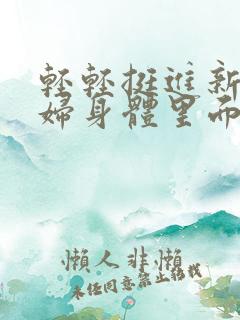 轻轻挺進新
婦身體里而
懶人非懶
未任同意禁止转载